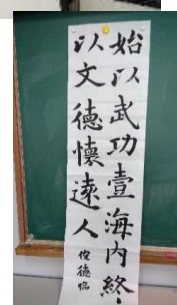 始以武功壹海内終
以文德懷遠人
俊德臨